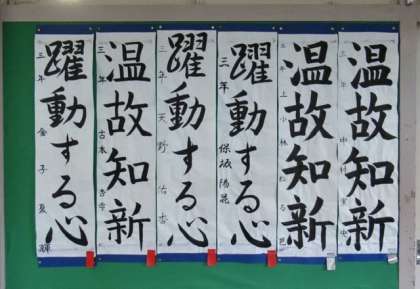 温故知新
三年
温故知新
三年 上小林
躍動する心
三年
躍動する心
三年 天野
温故知新
三年 古本
躍動する心
三年 金子 夏輝